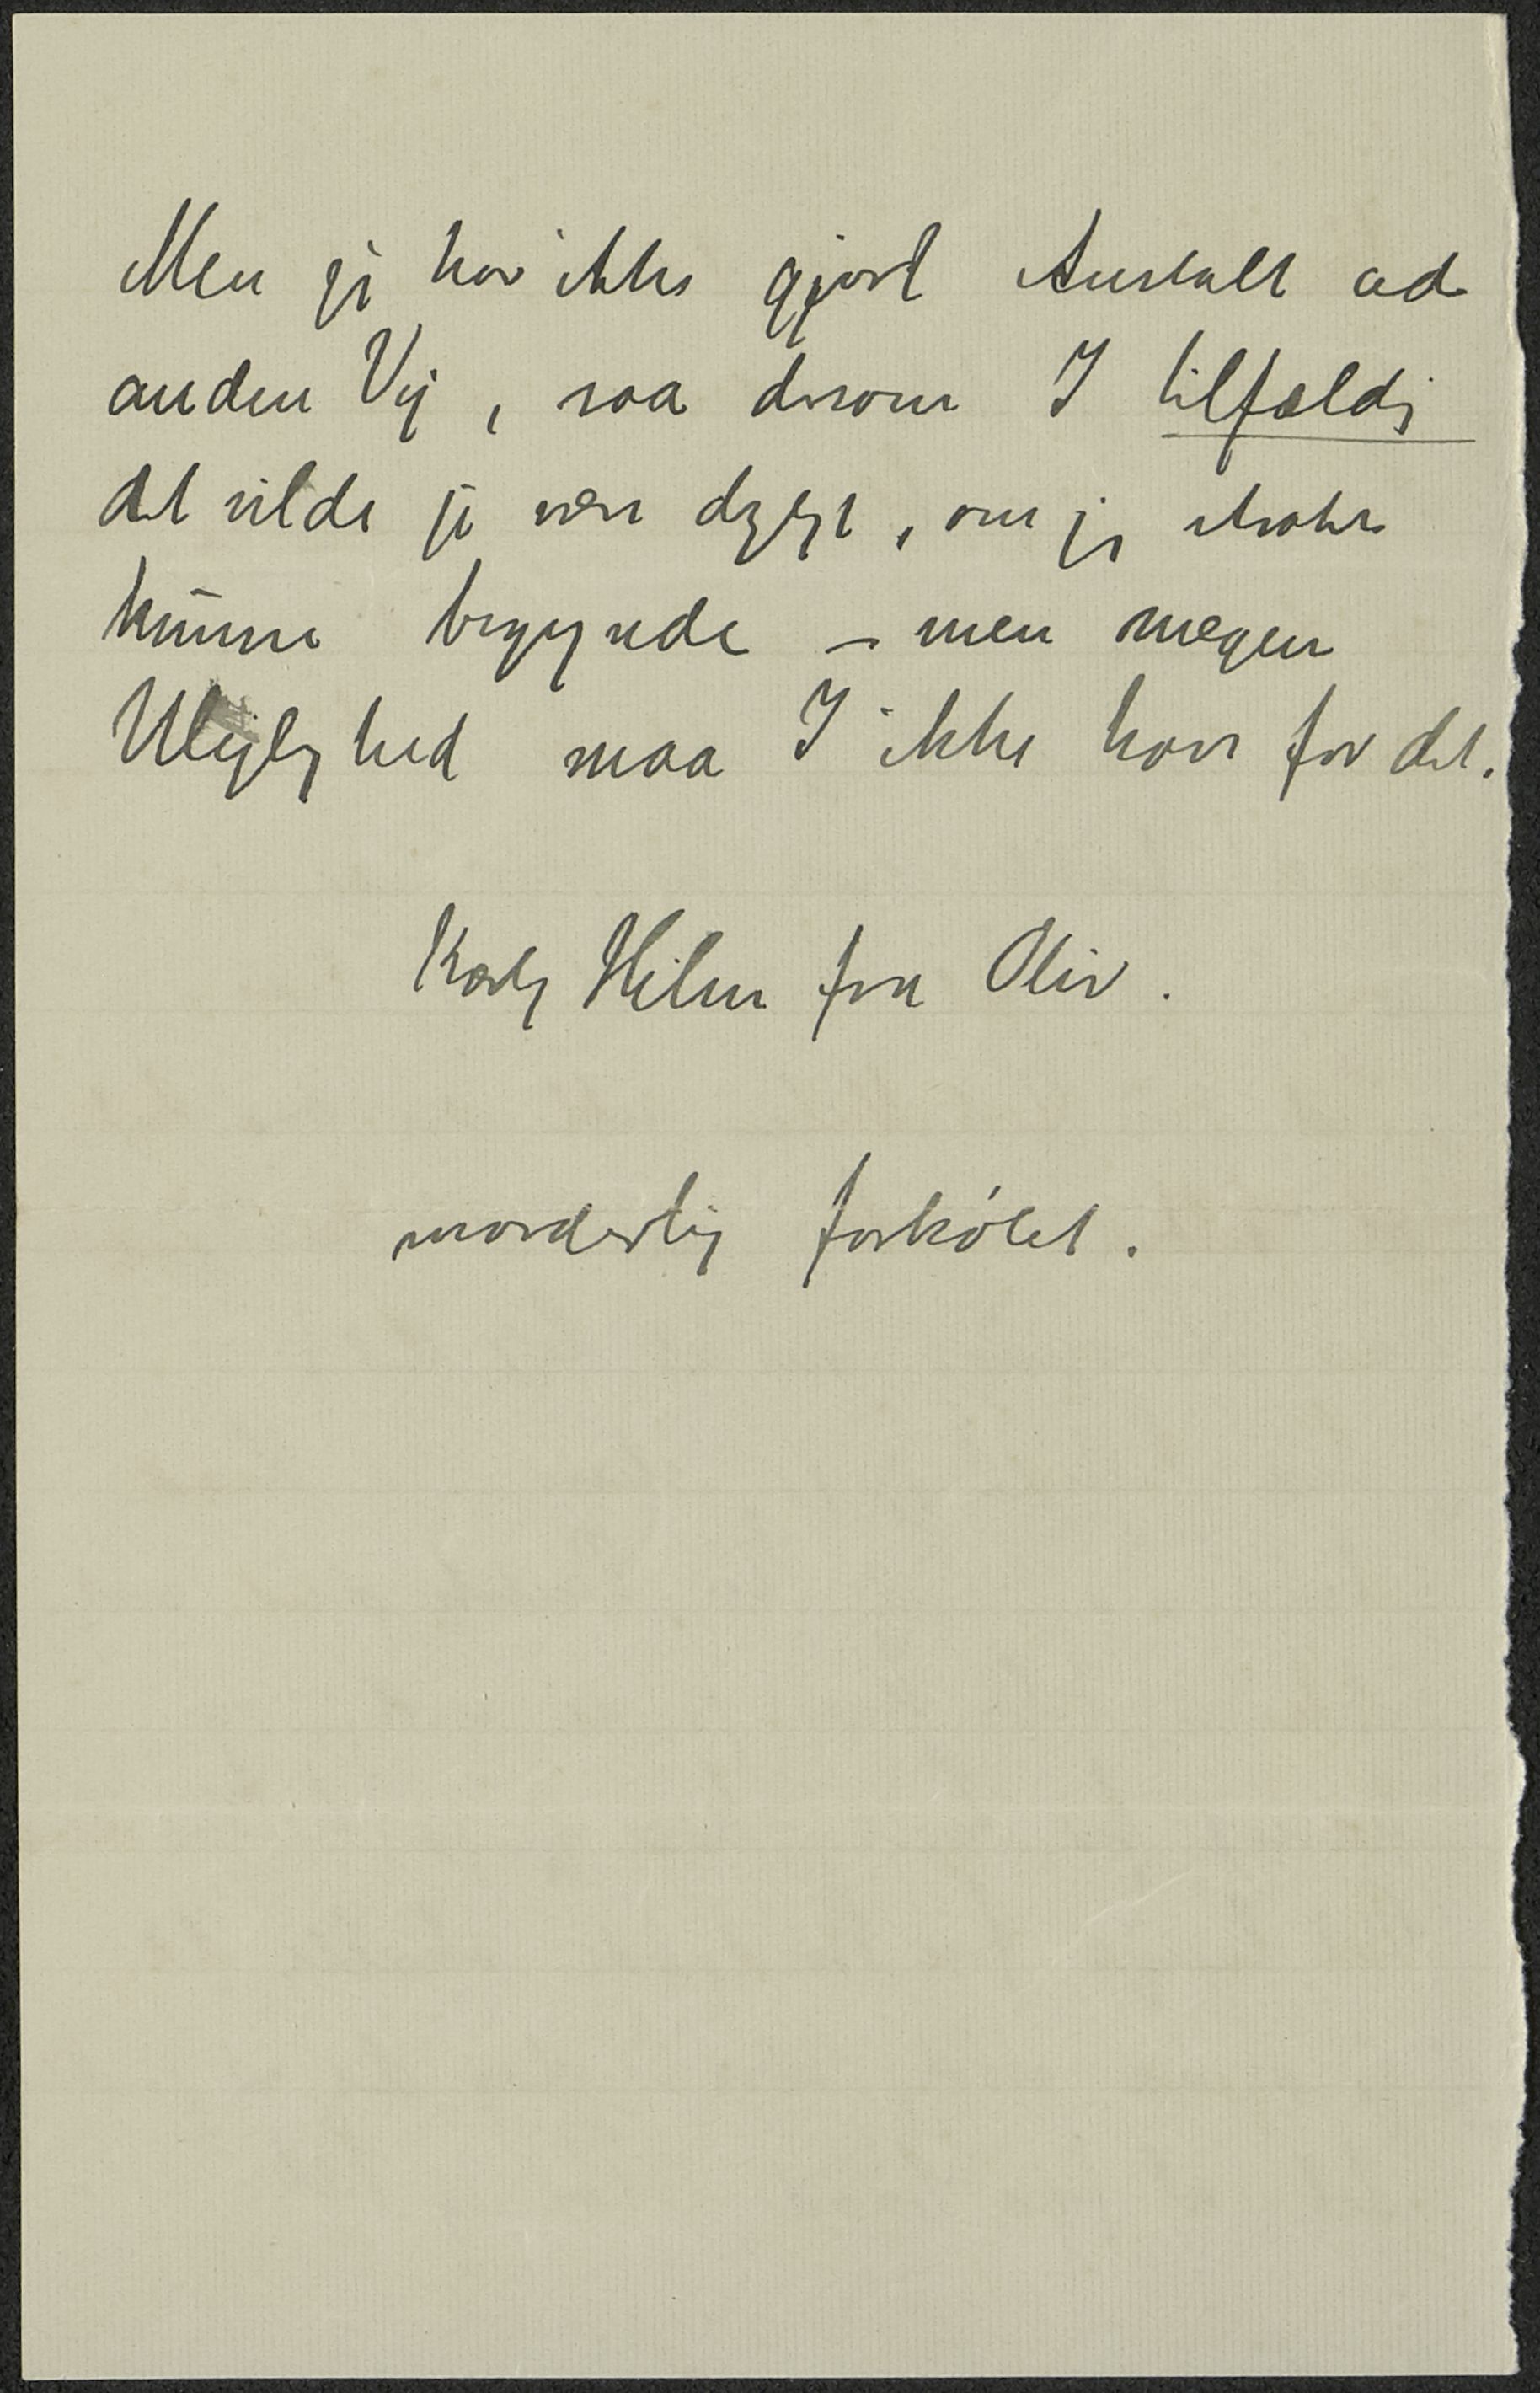 Men jeg har ikke gjort Anstalt ad
anden Vej, saa dersom I tilfældig
det vilde jo være dejligt, om jeg straks
kunne begynde – men megen
Ulejlighed maa I ikke have for det.
Kærlig Hilsen fra Oliv.
morderlig forkölet.